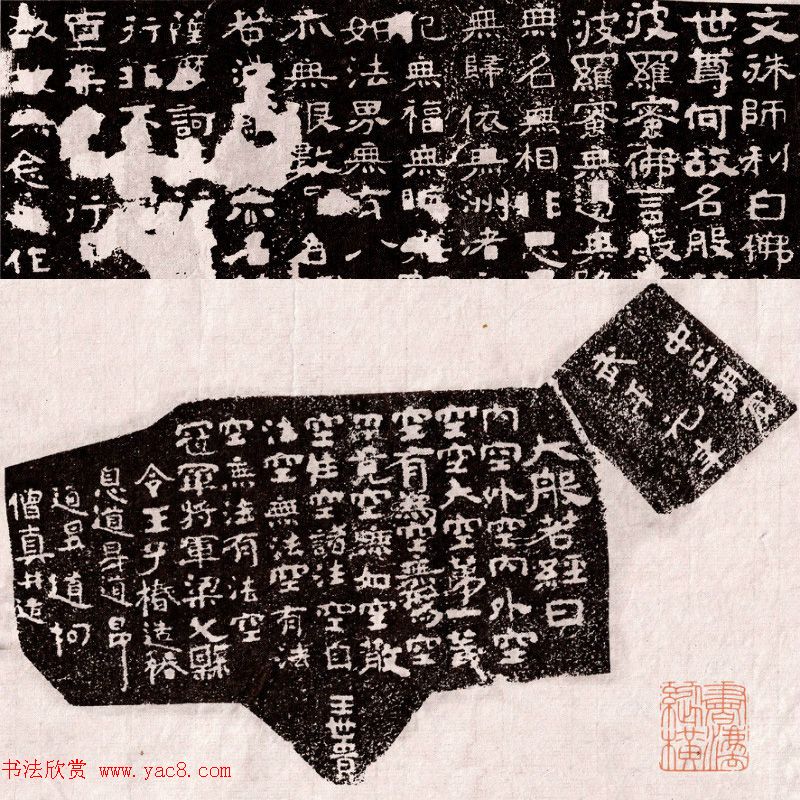 文殊師利白佛
世尊何故名般
波羅蜜佛言般
波羅蜜無邊無
無名無相非思
無歸依無洲渚
犯無福無晦無
如法界無有八
亦無限數 名
若 亦名
薩摩訶
行非不
行
故 無念 作
武平元年
大般若經曰
內空外空內外空
空空大空第一義
空有為空無為空
畢竟空無始空散
空性空諸法空自
法空無法空有法
空無法有法空
冠軍將軍梁父縣
令王子椿造椿
息道昇道昂
道昱道枸
僧真共造
王世貴
书法欣赏 www.yac8.com